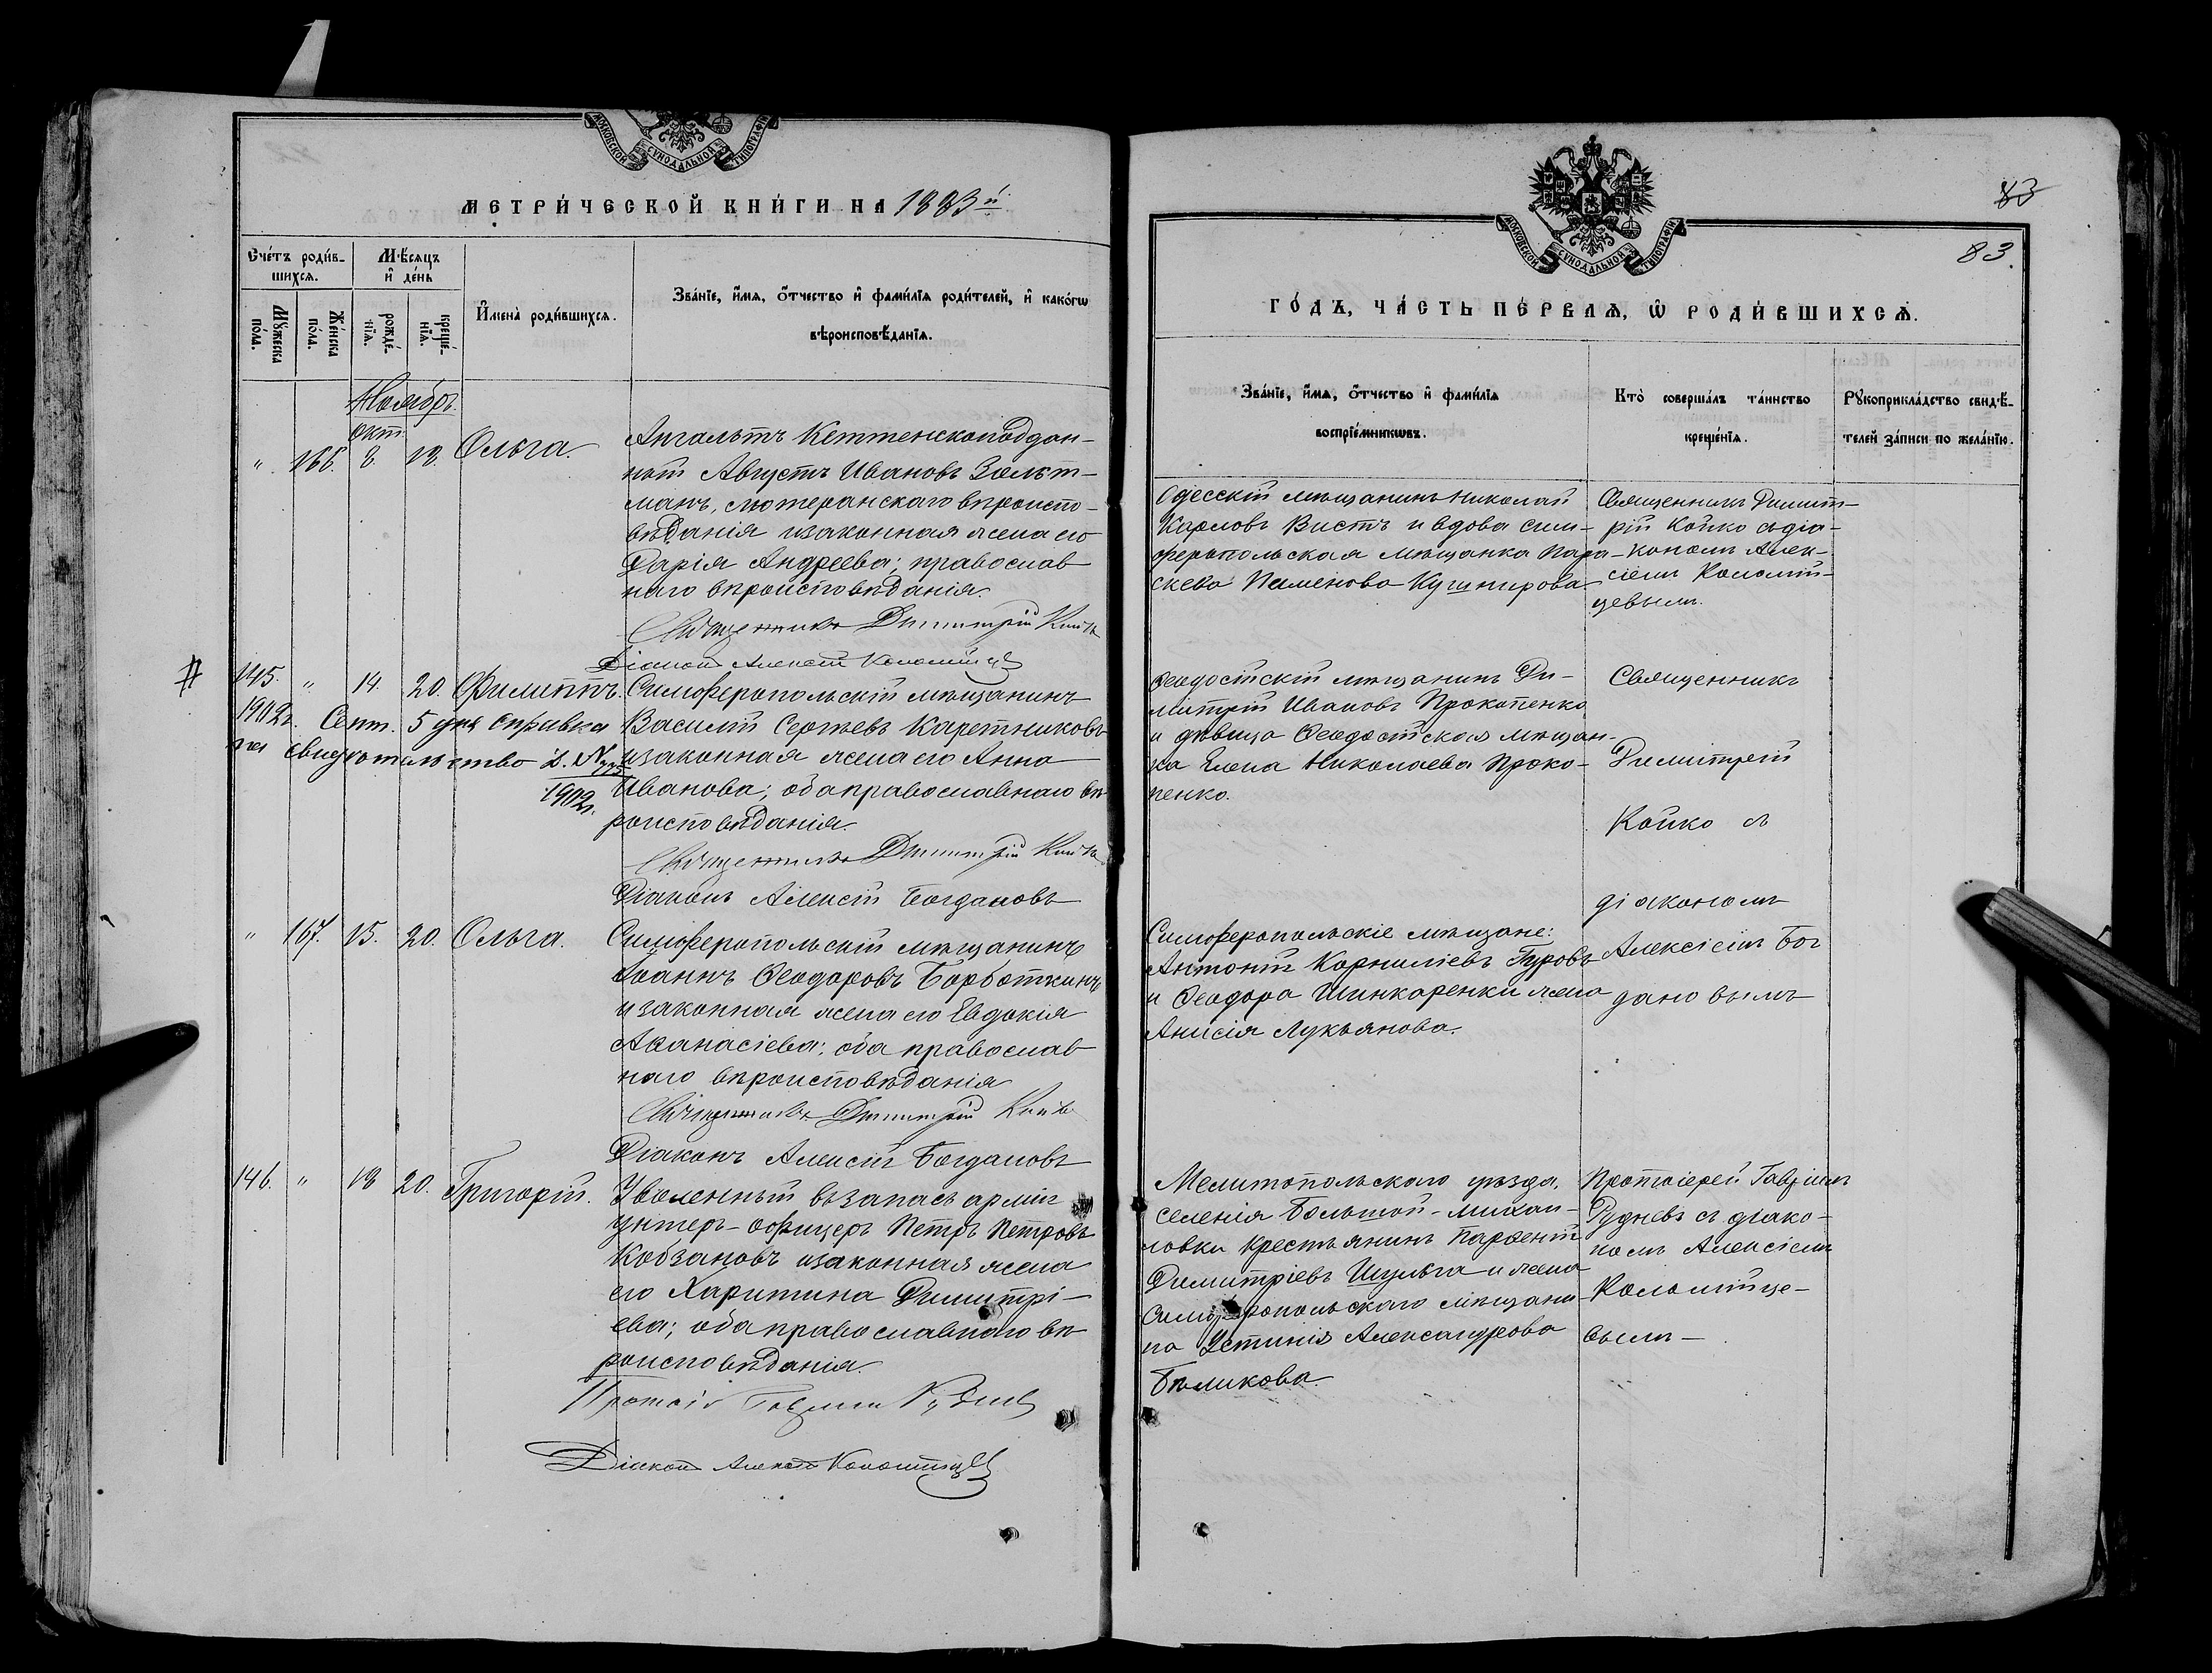 МОСКОВСКОЙ СѴНОДАЛЬНОЙ ТИПОГРАФІИ
МЕТРИ́ЧЕСКОЙ КНИ́ГИ НА 1883й
Сче́тъ роди́в-
шихсѧ.
Мѣ́сѧцъ
и҆ де́нь
Мꙋ́жеска
по́ла.
Же́нска
по́ла.
рожде́-
нїѧ.
креще́-
нїѧ.
И҆мена̀ роди́вшихсѧ.
Зва́нїе, и҆́мѧ, ѻ҆́тчество и҆ фами́лїѧ роди́телей, и҆ како́гѡ
вѣроисповѣ́данїѧ.
Ноябрь.
окт.
" 166. 8. 19. Ольга.
Ангальтъ Кеттенскоподдан-
ный Августъ Ивановъ Зельт-
манъ, лютеранскаго вѣроиспо-
вѣданія и законная жена его
Дарія Андреева; православ
наго вѣроисповѣданія.
Священникъ Димитрій Койко
Діаконъ Алексій Коломійцев
145. " 14. 20. Филиппъ.
Симферопольскій мѣщанинъ
Василій Сергѣевъ Каретниковъ
и законная жена его Анна
Иванова; оба православнаго вѣ
роисповѣданія.
1902г. Сент. 5 дня справка
на свидѣтельство з. №
1902г.
Священникъ Димитрій Койко
Діаконъ Алексій Богдановъ
" 167. 15. 20. Ольга.
Симферопольскій мѣщанинъ
Іоаннъ Ѳеодоровъ Борботкинъ
и законная жена его Евдокія
Аѳанасіева; оба православ
наго вѣроисповѣданія
Священникъ Димитрій Койко
Діаконъ Алексій Богдановъ
146. " 18 20. Григорій.
Уволенный въ запасъ арміи
унтеръ-офицеръ Петръ Петровъ
Кобзановъ и законная жена
его Харитина Димитрі-
ева; оба православнаго вѣ
роисповѣданія.
Протоіе Гавріилъ Руднев
Діаконъ Алексій Коломійцев
83
83.
МОСКОВСКОЙ СѴНОДАЛЬНОЙ ТИПОГРАФІИ
ГО́ДЪ, ЧА́СТЬ ПЕ́РВАѦ, Ѡ҆ РОДИ́ВШИХСѦ.
Зва́нїе, и҆́мѧ, ѻ҆́тчество и҆ фами́лїѧ
воспрїе́мникѡвъ.
Кто̀ соверша́лъ та́инство
креще́нїѧ.
Рꙋкоприкла́дство свидѣ́-
телей за́писи по жела́нїю.
Одесскій мѣщанинъ Николай
Карловъ Вистъ и вдова сим-
феропольская мѣщанка Пара-
скева Пименова Кушнирова
Священникъ Димит-
рій Койко съ діа-
кономъ Алек-
сіемъ Коломій-
цевымъ.
Ѳеодосійскій мѣщанинъ Ди-
митрій Ивановъ Прокопенко
и дѣвица Ѳеодосійская мѣщан-
ка Елена Николаева Проко-
пенко.
Священникъ
Димитрій
Койко съ
діакономъ
Алексіемъ Бог
дановымъ
Симферопольскіе мѣщане:
Антоній Корниліевъ Гуровъ
и Ѳеодора Шинкаренки жена
Анисія Лукьянова.
Мелитопольскаго уѣзда,
селенія Большой-Михай-
ловки крестьянинъ Парѳеній
Димитріевъ Шульга и жена
Симферопольскаго мѣщани
на Устинія Александрова
Бѣликова.
Протоіерей Гавріилъ
Рудневъ съ діако-
номъ Алексіемъ
Коломійце-
вымъ